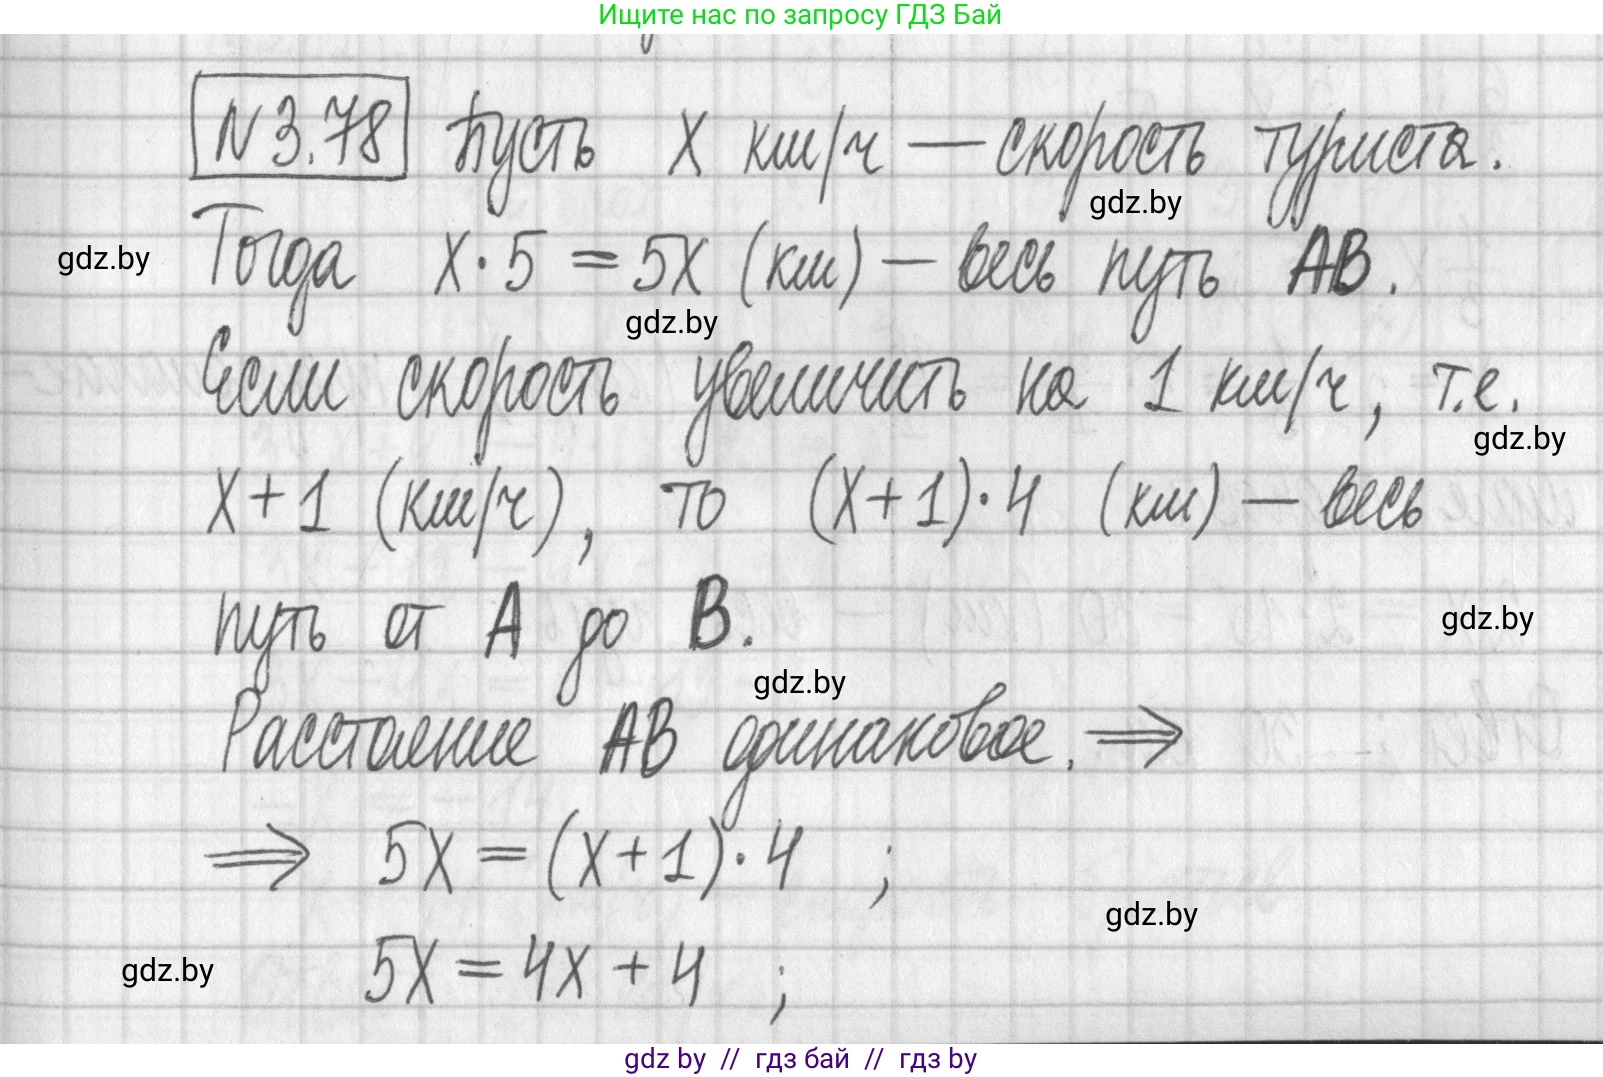 Ищите нас по запросу ГДЗ Бай
N 3.78 Пусть x км/ч — скорость туриста.
gdz.by
Тогда x·5 = 5x (км) — весь путь AB.
gdz.by
gdz.by
Если скорость увеличить на 1 км/ч, т.е.
gdz.by
x+1 (км/ч), то (x+1)·4 (км) — весь
путь от A до B.
gdz.by
gdz.by
Расстояние AB одинаковое. ⇒
⇒ 5x = (x+1)·4 ;
gdz.by
5x = 4x + 4 ;
gdz.by
gdz by // гдз бай // гдз by